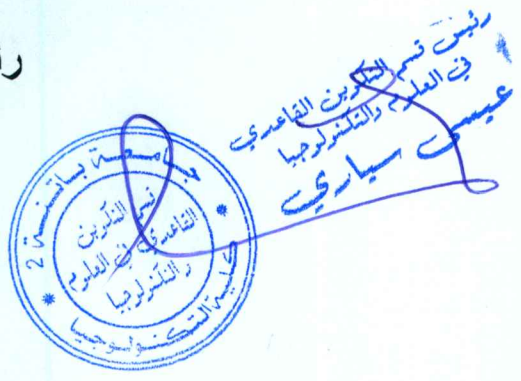 ر
رئيس قسم التكوين القاعدي
في العلوم والتكنولوجيا
عيسى سياري
جامعة باتنة 2
قسم التكوين
القاعدي في العلوم
والتكنولوجيا
كلية التكنولوجيا